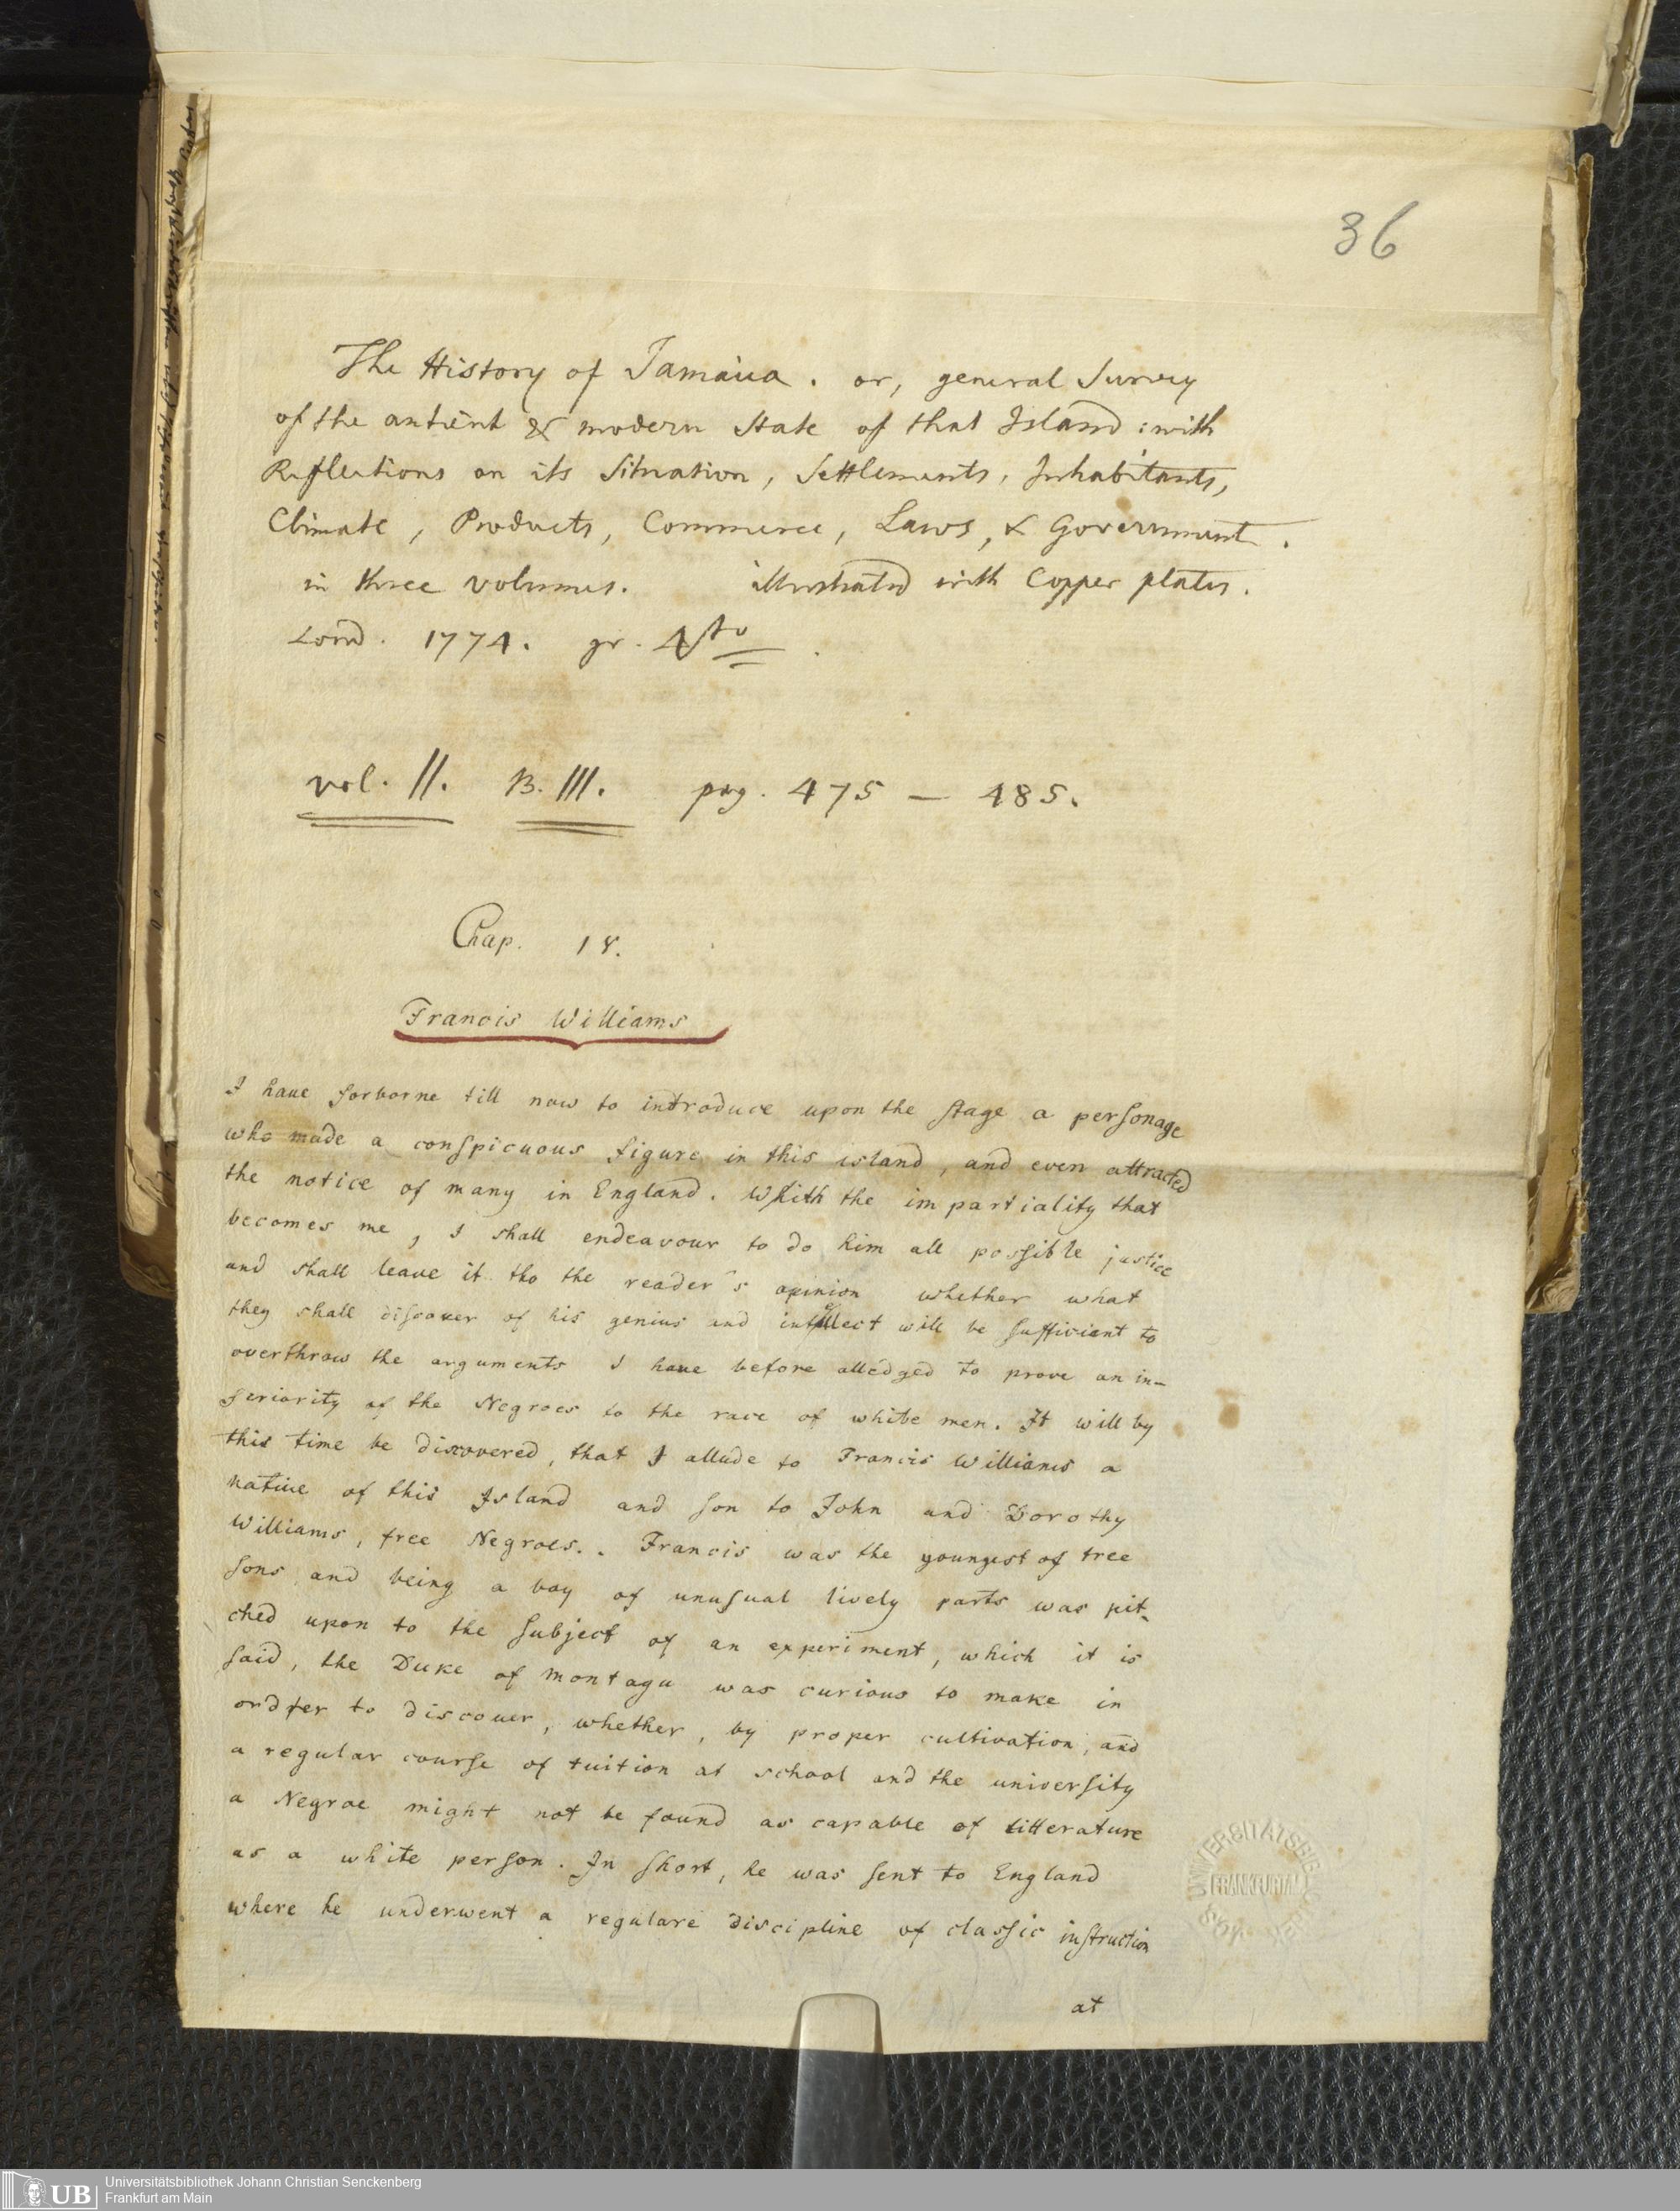 36
The History of Jamaica. or, general Survey
of the antient & modern State of that Island: with
Reflections on its Situation, Settlements, Inhabitants,
Climate, Products, Commerce, Laws, & Government.
in three volumes. illustrated with Copper plates.
Lond. 1774. gr. 4to.
vol. II. B. III. pag. 475 — 485.
Chap. 18.
Francis Williams
I haue forborne till now to introduce upon the stage a personage
who made a conspicuous figure in this island, and even attracted
the notice of many in England. Whith the impartiality that
becomes me, I shall endeavour to do him all possible justice
and shall leaue it tho the reader's opinion whether what
they shall discover of his genius and intellect will be sufficient to
overthrow the arguments I haue before alledged to prove an in-
feriority of the Negroes to the race of white men. It will by
this time be discovered, that I allude to Francis Williams a
natiue of this Island and son to John and Dorothy
Williams, free Negroes.. Francis was the youngest of tree
sons and being a boy of unusual lively parts was pit-
ched upon to the subject of an experiment, which it is
said, the Duke of Montagu was curious to make in
order to discouer, whether, by proper cultivation, and
a regular course of tuition at school and the university
a Negroe might not be found as capable of litterature
as a white person. In short, he was sent to England
where he underwent a regulare discipline of classic instruction
at
UB
Universitätsbibliothek Johann Christian Senckenberg
Frankfurt am Main